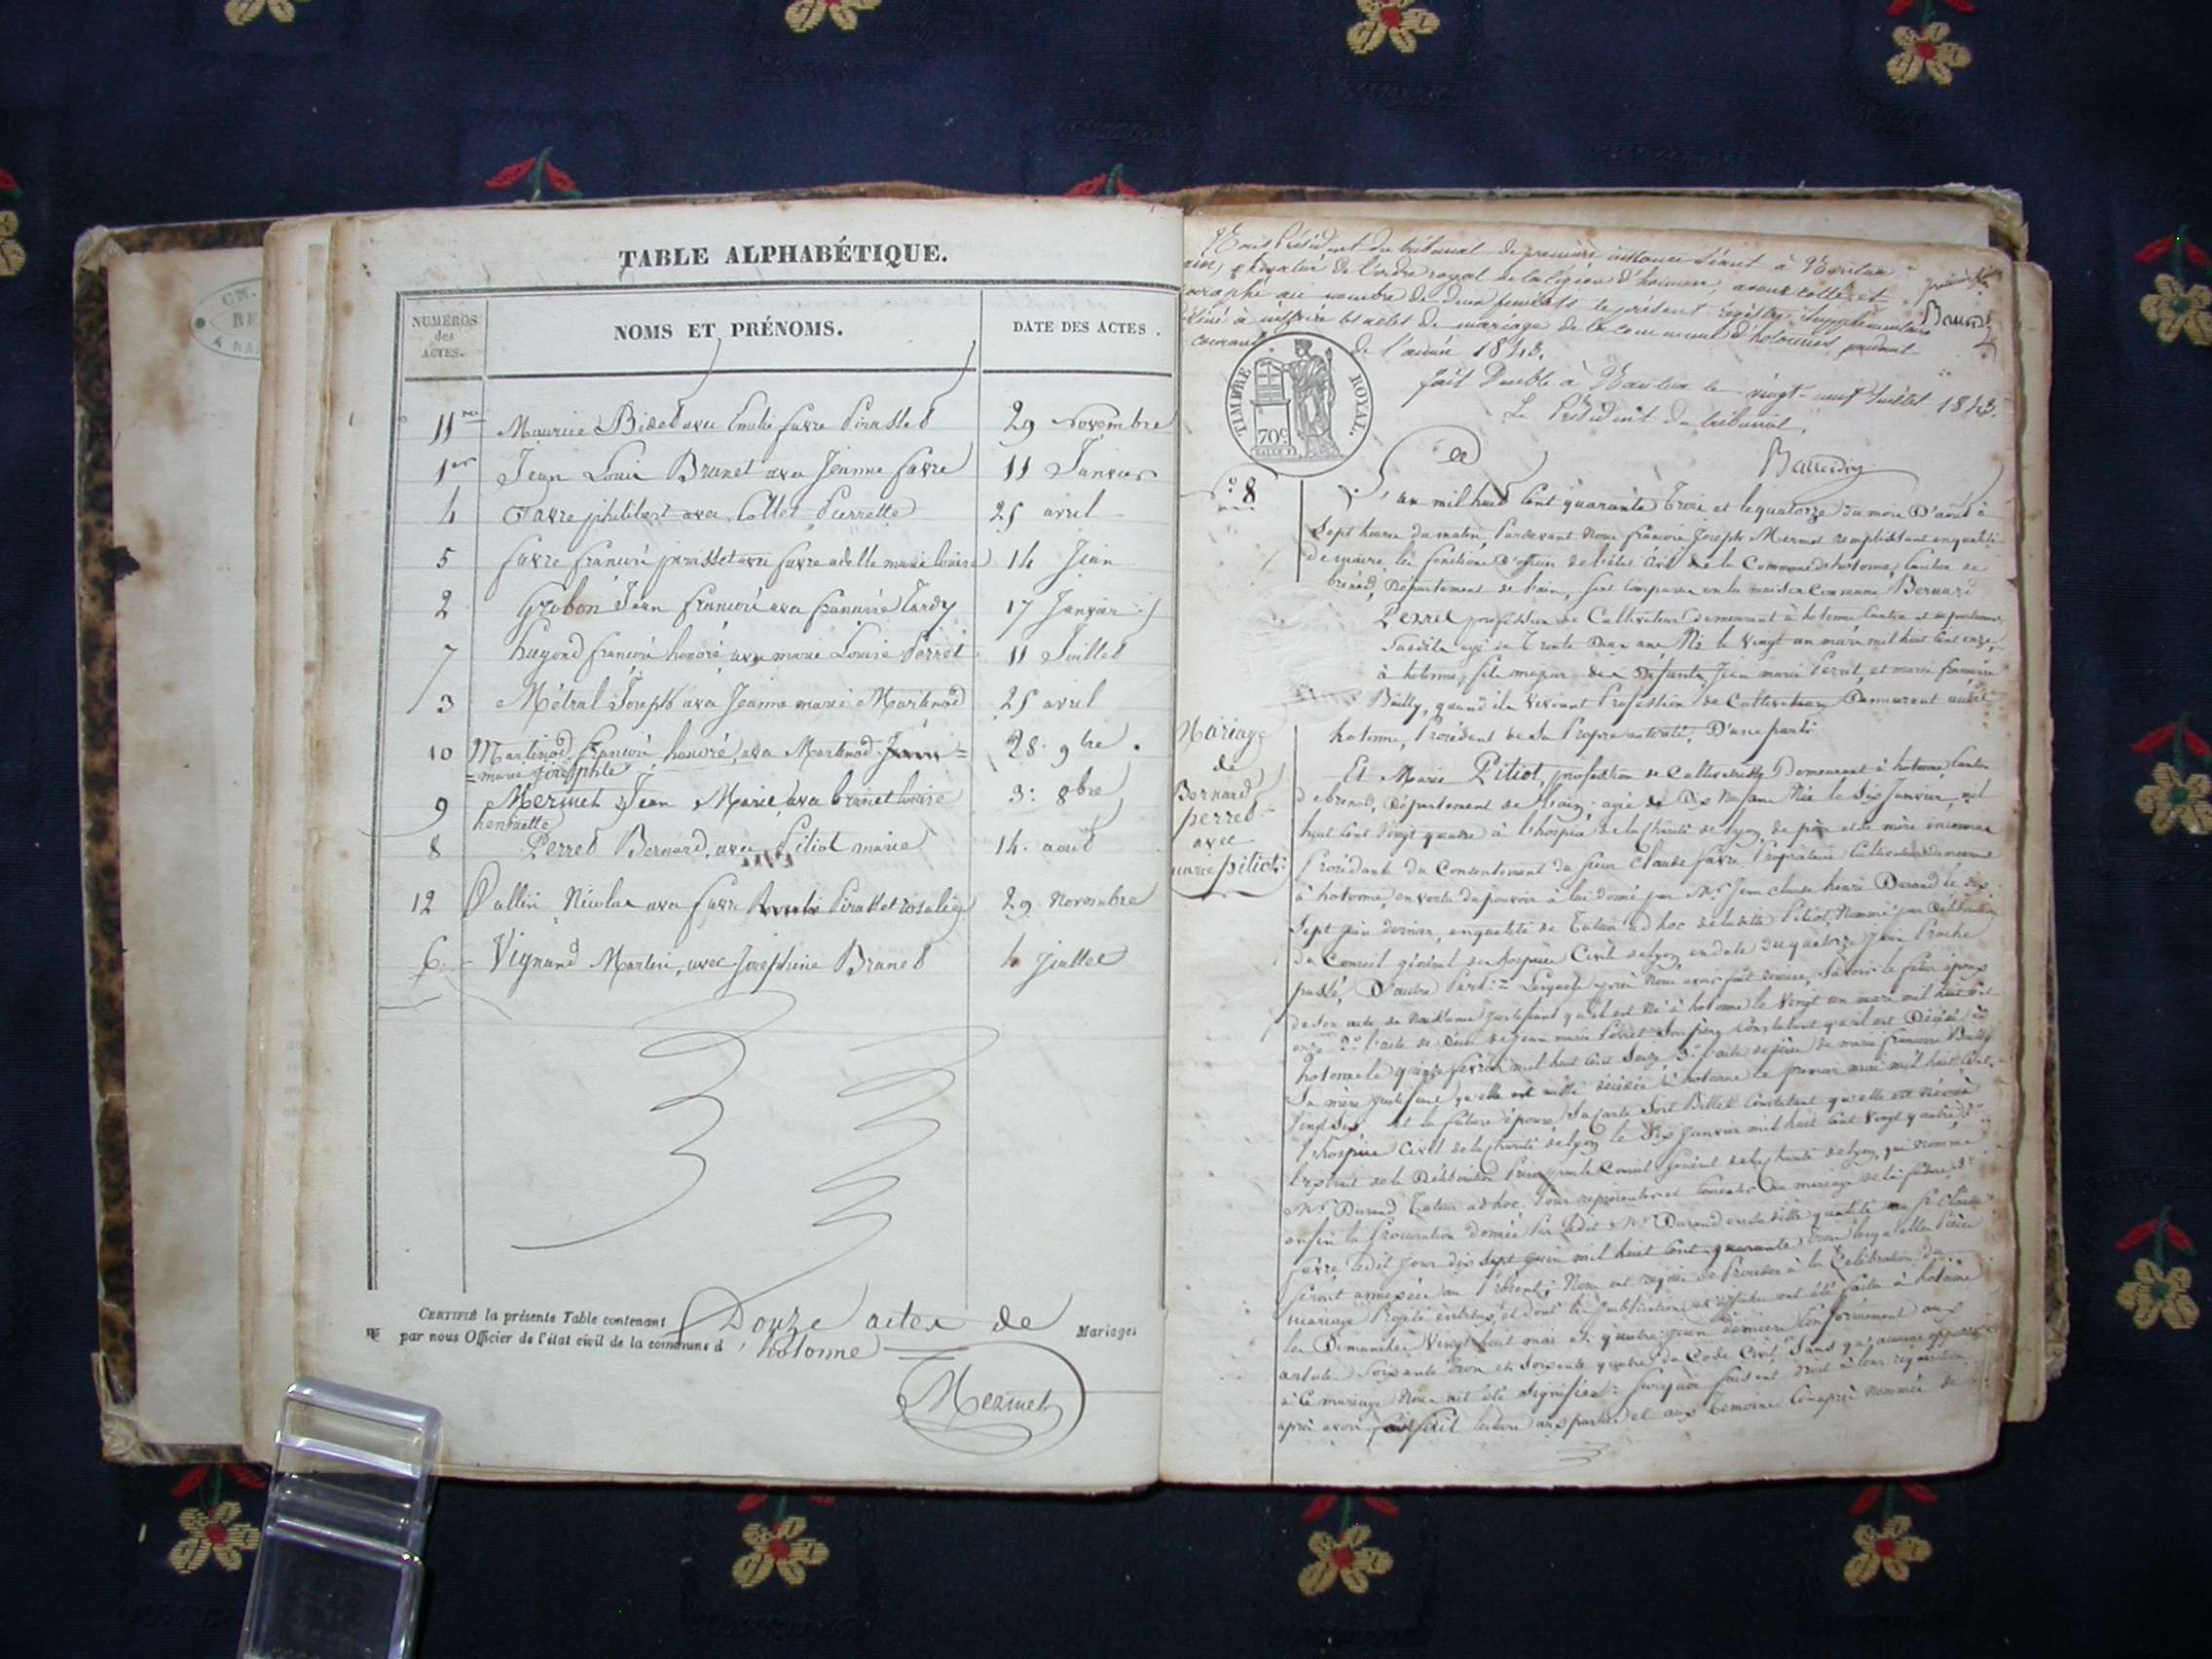 TABLE ALPHABÉTIQUE.
NUMÉROS
des
ACTES.
NOMS ET PRÉNOMS.
DATE DES ACTES.
11 Maurice Bidet avec Emilie favre Pirasset 29 Novembre
1er Jean Louis Brunet avec Jeanne favre 11 Janvier
4 favre philibert avec Collet Pierrette 25 avril
5 favre françois pirasset avec favre adelle marie louise 14 Juin
2 Grobon Jean françois avec françoise Tardy 17 Janvier
7 hugond françois honoré avec marie Louise Perret 11 Juillet
3 Métral Joseph avec Jeanne marie Martinod 25 avril
10 Martinod françois honoré, avec Martinod =
= marie josephte 28. 9bre.
9 Mermet Jean Marie avec brunet louise 3: 8bre
henriette
8 Perret Bernard, avec Pitiot marie 14. août
12 Nicolas avec favre Pirasset rosalie 29. Novembre
6 Vignand Martin, avec Josephine Brunet 4 Juillet
CERTIFIÉ la présente Table contenant Douze actes de Mariages
par nous Officier de l'état civil de la commune d'hotonne
Mermet
Nous Président du tribunal de première instance séant à Nantua
ain, chevalier de l'ordre royal de la légion d'honneur, avons cotté et
paraphé au nombre de deux feuillets le présent registre supplémentaire
à inscrire les actes de mariage de la commune d'hotonnes, pendant
courant de l'année 1843.
TIMBRE ROYAL.
70c
fait Double à Nantua le vingt-neuf Juillet 1843.
Le Président du tribunal,
No 8
L'an mil huit Cent quarante trois et le quatorze du mois D'août à
Sept heures du matin, Pardevant Nous françois Joseph Mermet remplissant en qualité
de maire les fonctions d'officier de l'état Civil de la Commune d'hotonne, Canton de
brénod, Département de l'ain, sont Comparu en la maison Commune Bernard
Perret profession de Cultivateur demeurant à hotonne Canton et département
susdits agé de Trente Deux ans, Né le Vingt un mars mil huit Cent onze,
à hotonne, fils majeur des Défunts Jean marie Perret, et marie françoise
Bailly, quand ils vivaient Profession de Cultivateurs Demeurant audit
hotonne, Procédant de Sa Propre autorité, D'une part:
Mariage
de
Bernard
perret
avec
marie pitiot:
Et Marie Pitiot, profession de Cultivatrice Demeurant à hotonne Canton
de brenod, Département de l'ain, agée de Dix Neuf ans Née le Six Janvier mil
huit Cent Vingt quatre à l'hospice de la Charité de lyon, de père et de mère inconnus
Procédant du Consentement du sieur Claude favre Propriétaire Cultivateur demeurant
à hotonne, en vertu du pouvoir à lui donné par Mr. Jean claude henri Durand le dix
Sept juin dernier, en qualité de Tuteur ad hoc de ladite Pitiot, Nommé par Délibération
du Conseil général des hospices Civils de lyon en date du quatorze Juin Proche
passé, D'autre Part: = Lesquels après Nous avoir fait remise, Savoir le futur époux
de Son acte de Naissance justifiant qu'il est Né à hotonne le Vingt un mars mil huit Cent
onze 2o l'acte de Décès de Jean marie Perret Son père Constatant qu'il est Décédé à
hotonne le quinze février mil huit Cent Seize, 3o l'acte de décès de marie françoise Bailly
Sa mère justifiant qu'elle est décédée à hotonne le premier mai mil huit Cent
Vingt Six et la future épouse Constatant qu'elle est Née à
l'hospice Civil de la charité de lyon le Six Janvier mil huit Cent Vingt quatre 2o
l'extrait de la Délibération Prise par le Conseil général de la charité de lyon, qui nomme
Mr. Durand Tuteur ad hoc Pour représenter et Consentir au mariage de la future, 3o
enfin la Procuration donnée Par ledit Mr. Durand en sa dite qualité au Sr. Claude
favre ledit jour dix sept juin mil huit Cent quarante trois lesquelles Pièces
seront annexées au Présent, Nous ont requis de Procéder à la Célébration du
mariage Projeté entr'eux, et dont les publications et affiches ont été faites à hotonne
les Dimanches Vingt huit mai et quatre juin derniers Conformément aux
articles Soixante trois et Soixante quatre du Code Civil, Sans qu'aucune opposition
à Ce mariage Nous ait été Signifiée: faisant droit à leur réquisition
après avoir fait lecture aux parties et aux temoins Ci-après nommés de